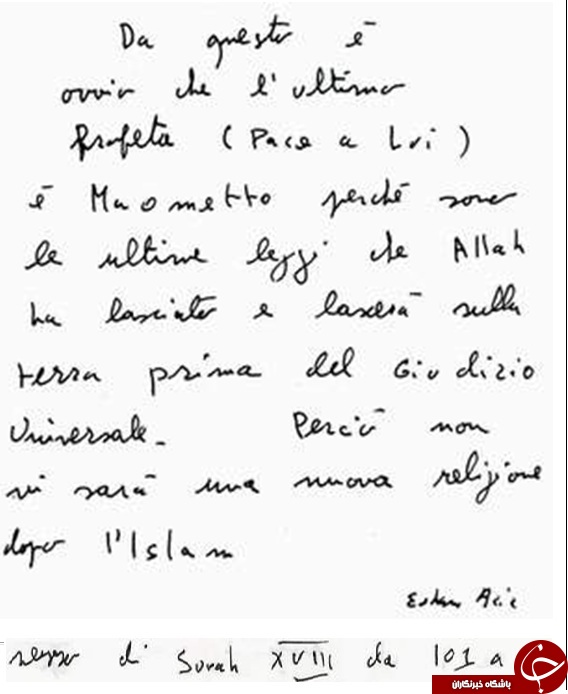 Da questo è
ovvio che l'ultimo
Profeta (Pace a Lui)
è Maometto perché sono
le ultime leggi che Allah
ha lasciato e lascerà sulla
terra prima del Giudizio
Universale. Perciò non
vi sarà una nuova religione
dopo l'Islam
di Surah XVIII da 101 a
باشگاه خبرنگاران